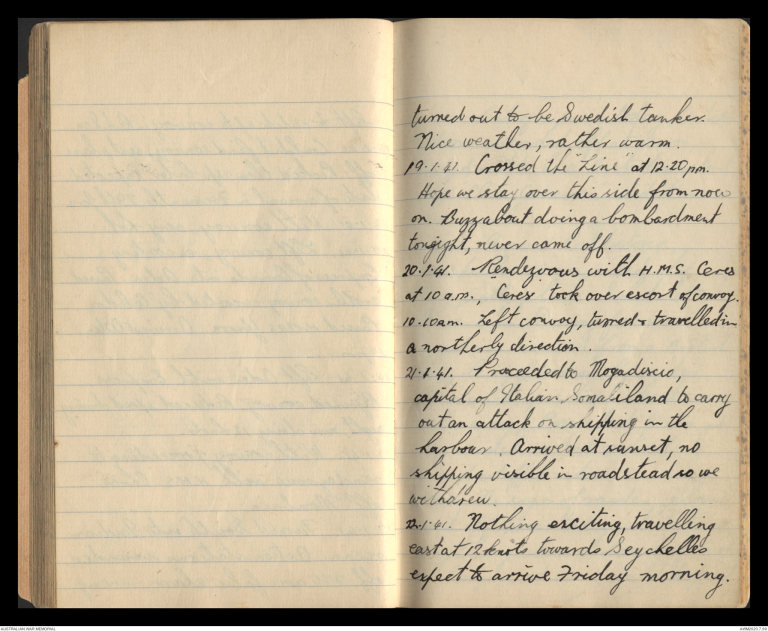 turned out to be Swedish tanker.
Nice weather, rather warm.
19.1.41. Crossed the "Line" at 12.20pm.
Hope we stay over this side from now
on. Buzz about doing a bombardment
tongight, never came off.
20.1.41. Rendezvous with H.M.S. Ceres
at 10 a.m., "Ceres" took over escort of convoy.
10.10am. Left convoy, turned & travelled in
a northerly direction.
21.1.41. Proceeded to Mogadiscio,
capital of Italian Somaliland to carry
out an attack on shipping in the
harbour. Arrived at sunset, no
shipping visible in roadstead so we
withdrew.
22.1.41. Nothing exciting, travelling
east at 12 knots towards Seychelles
expect to arrive Friday morning.
AUSTRALIAN WAR MEMORIAL